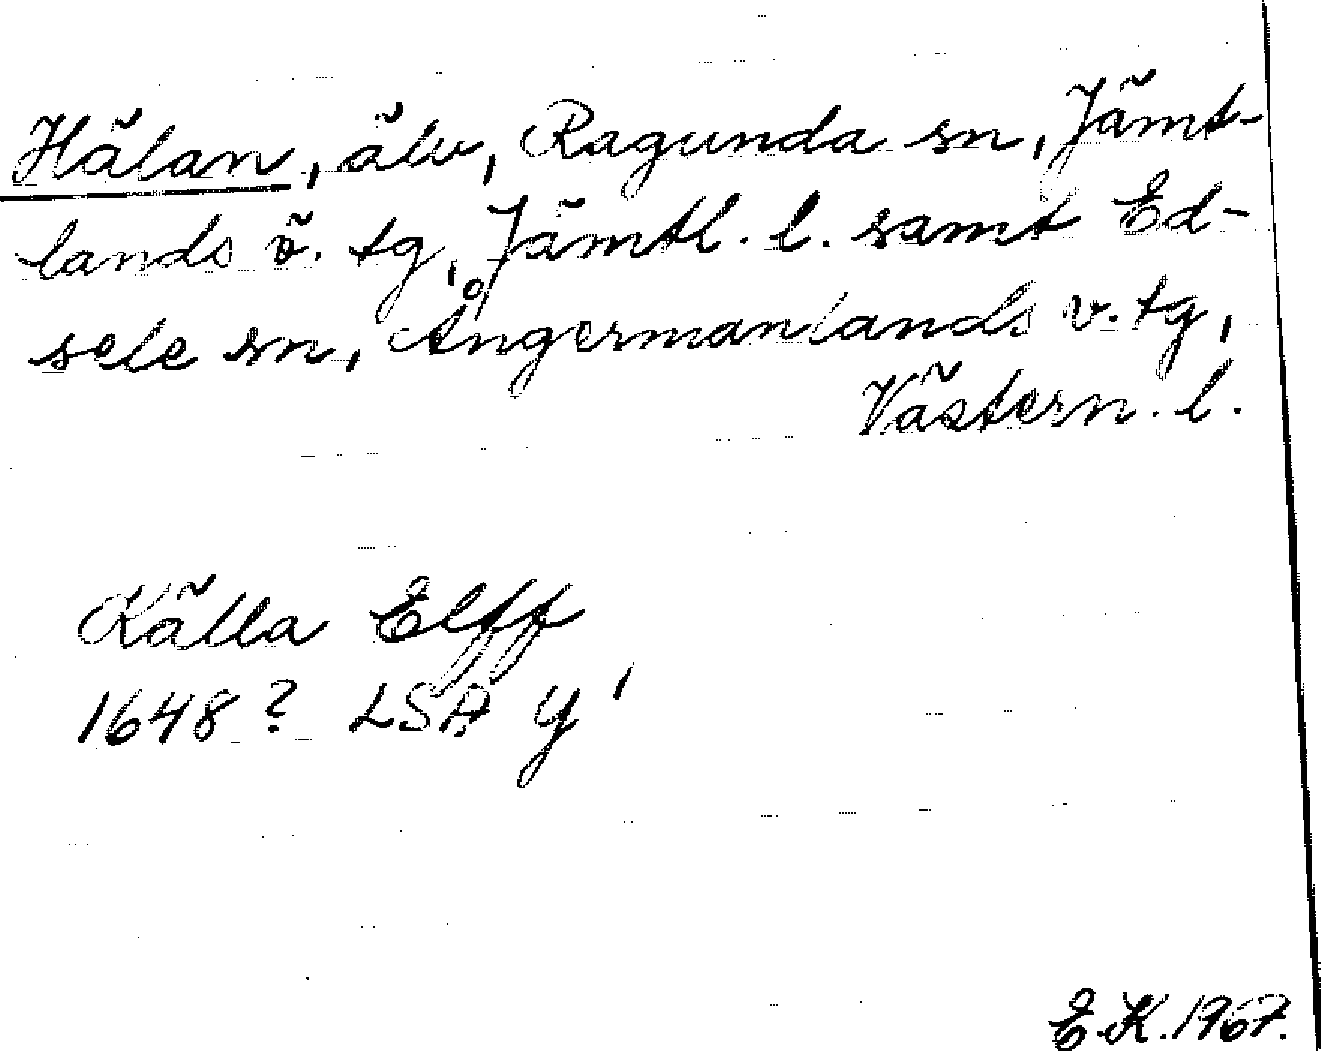 Hälan, älv, Ragunda sn, Jämt-
lands ö. tg, Jämtl. l. samt Ed-
sele sn, Ångermanlands v. tg,
Västern. l.
Källa Elff
1648? LSA y'
E.K. 1967.